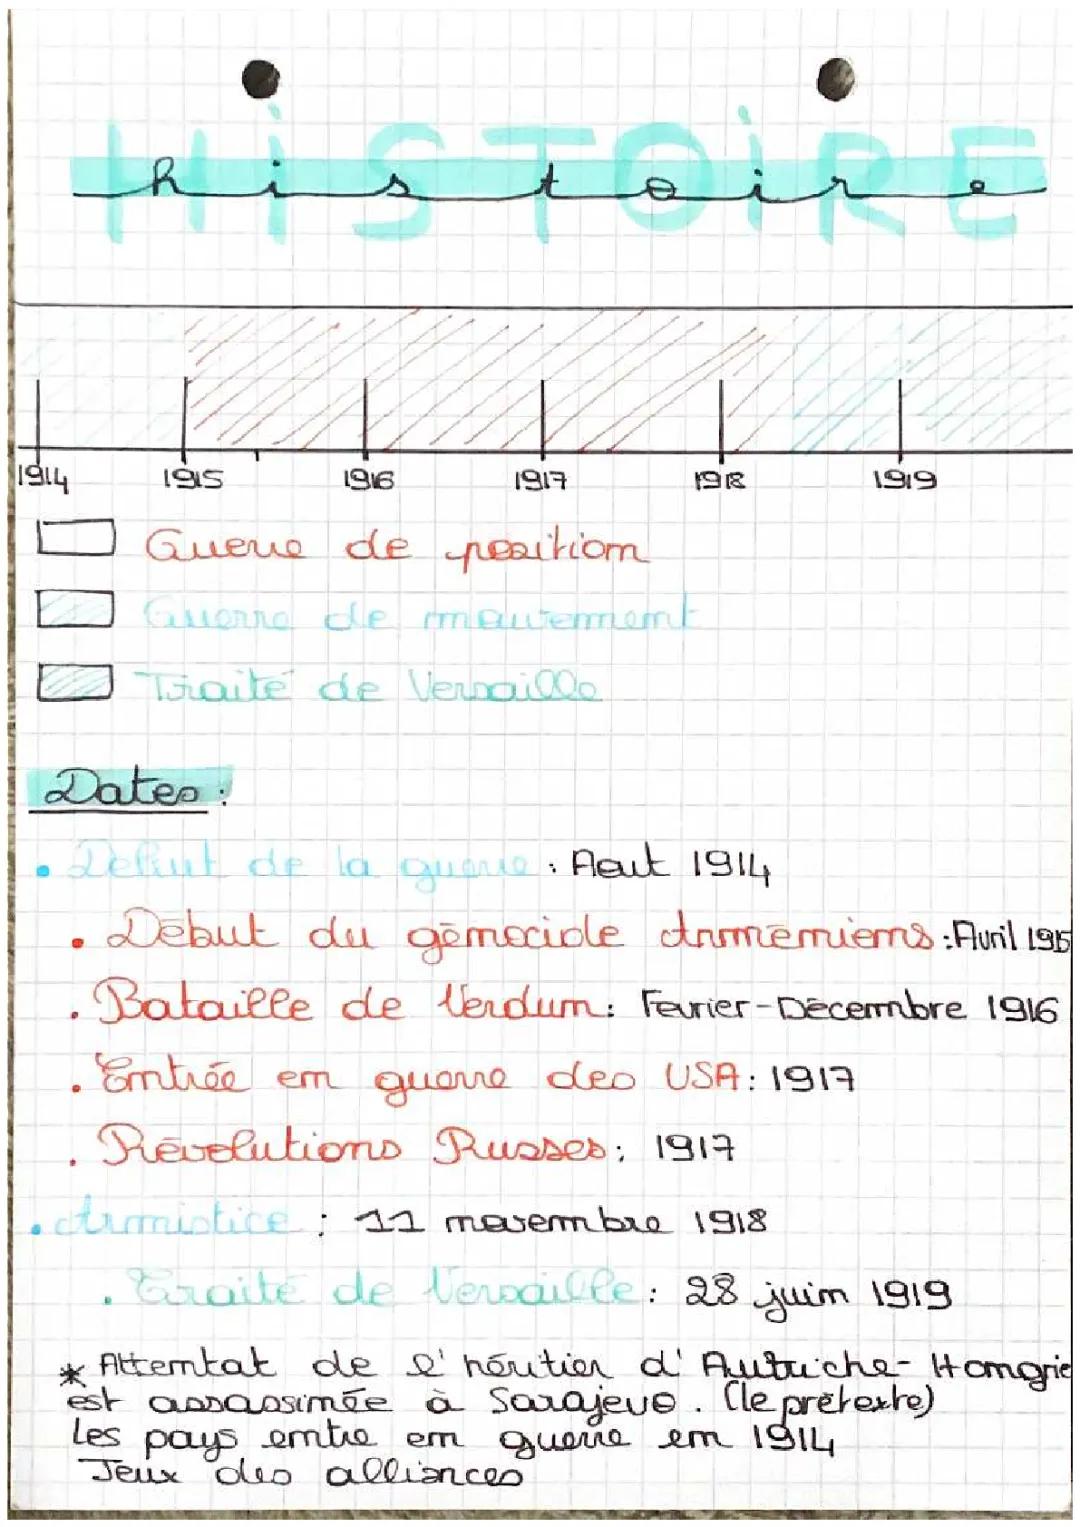 HiSTOiRE
histoire
1914 1915 1916 1917 1918 1919
Guerre de position
Guerre de mouvement
Traité de Versaille
Dates :
• Début de la guerre : Aout 1914
• Début du génocide Arméniens : Avril 1915
• Bataille de Verdun : Février-Décembre 1916
• Entrée en guerre des USA : 1917
• Révolutions Russes : 1917
• Armistice : 11 novembre 1918
• Traité de Versaille : 28 juin 1919
* Attentat de l'héritier d'Autriche-Hongrie
est assassinée à Sarajevo. (le prétexte)
Les pays entre en guerre en 1914
Jeux des alliances